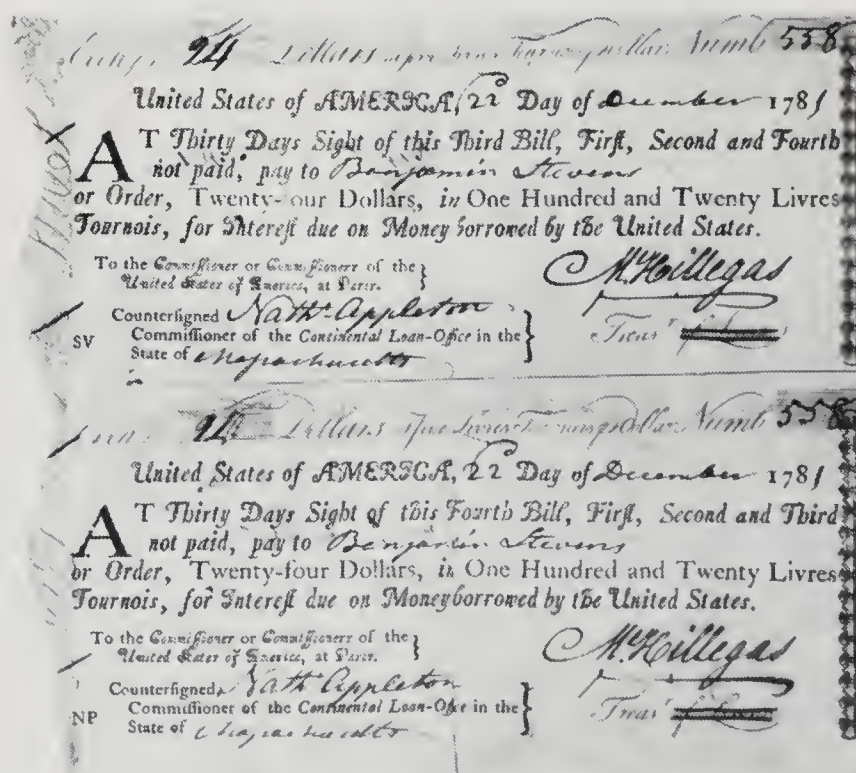 24 Dollars Numb 558
United States of AMERICA, 22 Day of December 1781
AT Thirty Days Sight of this Third Bill, First, Second and Fourth
not paid, pay to Benjamin Stevens
or Order, Twenty-four Dollars, in One Hundred and Twenty Livres
Tournois, for Interest due on Money borrowed by the United States.
To the Commissioner or Commissioners of the
United States of America, at Paris.
M Hillegas
Countersigned Nathl. Appleton
Treasr
SV
Commissioner of the Continental Loan-Office in the
State of Massachusetts
24 Dollars Five Livres Tournois p Dollar Numb 558
United States of AMERICA, 22 Day of December 1781
AT Thirty Days Sight of this Fourth Bill, First, Second and Third
not paid, pay to Benjamin Stevens
or Order, Twenty-four Dollars, in One Hundred and Twenty Livres
Tournois, for Interest due on Money borrowed by the United States.
To the Commissioner or Commissioners of the
United States of America, at Paris.
M Hillegas
Countersigned Nathl Appleton
Treasr
NP
Commissioner of the Continental Loan-Office in the
State of Massachusetts